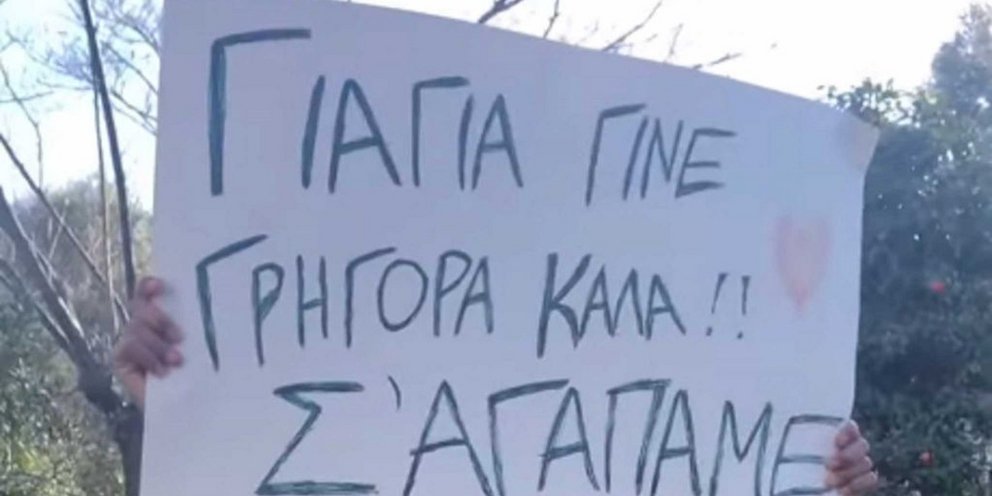 ΓΙΑΓΙΑ ΓΙΝΕ
ΓΡΗΓΟΡΑ ΚΑΛΑ!!
Σ'ΑΓΑΠΑΜΕ